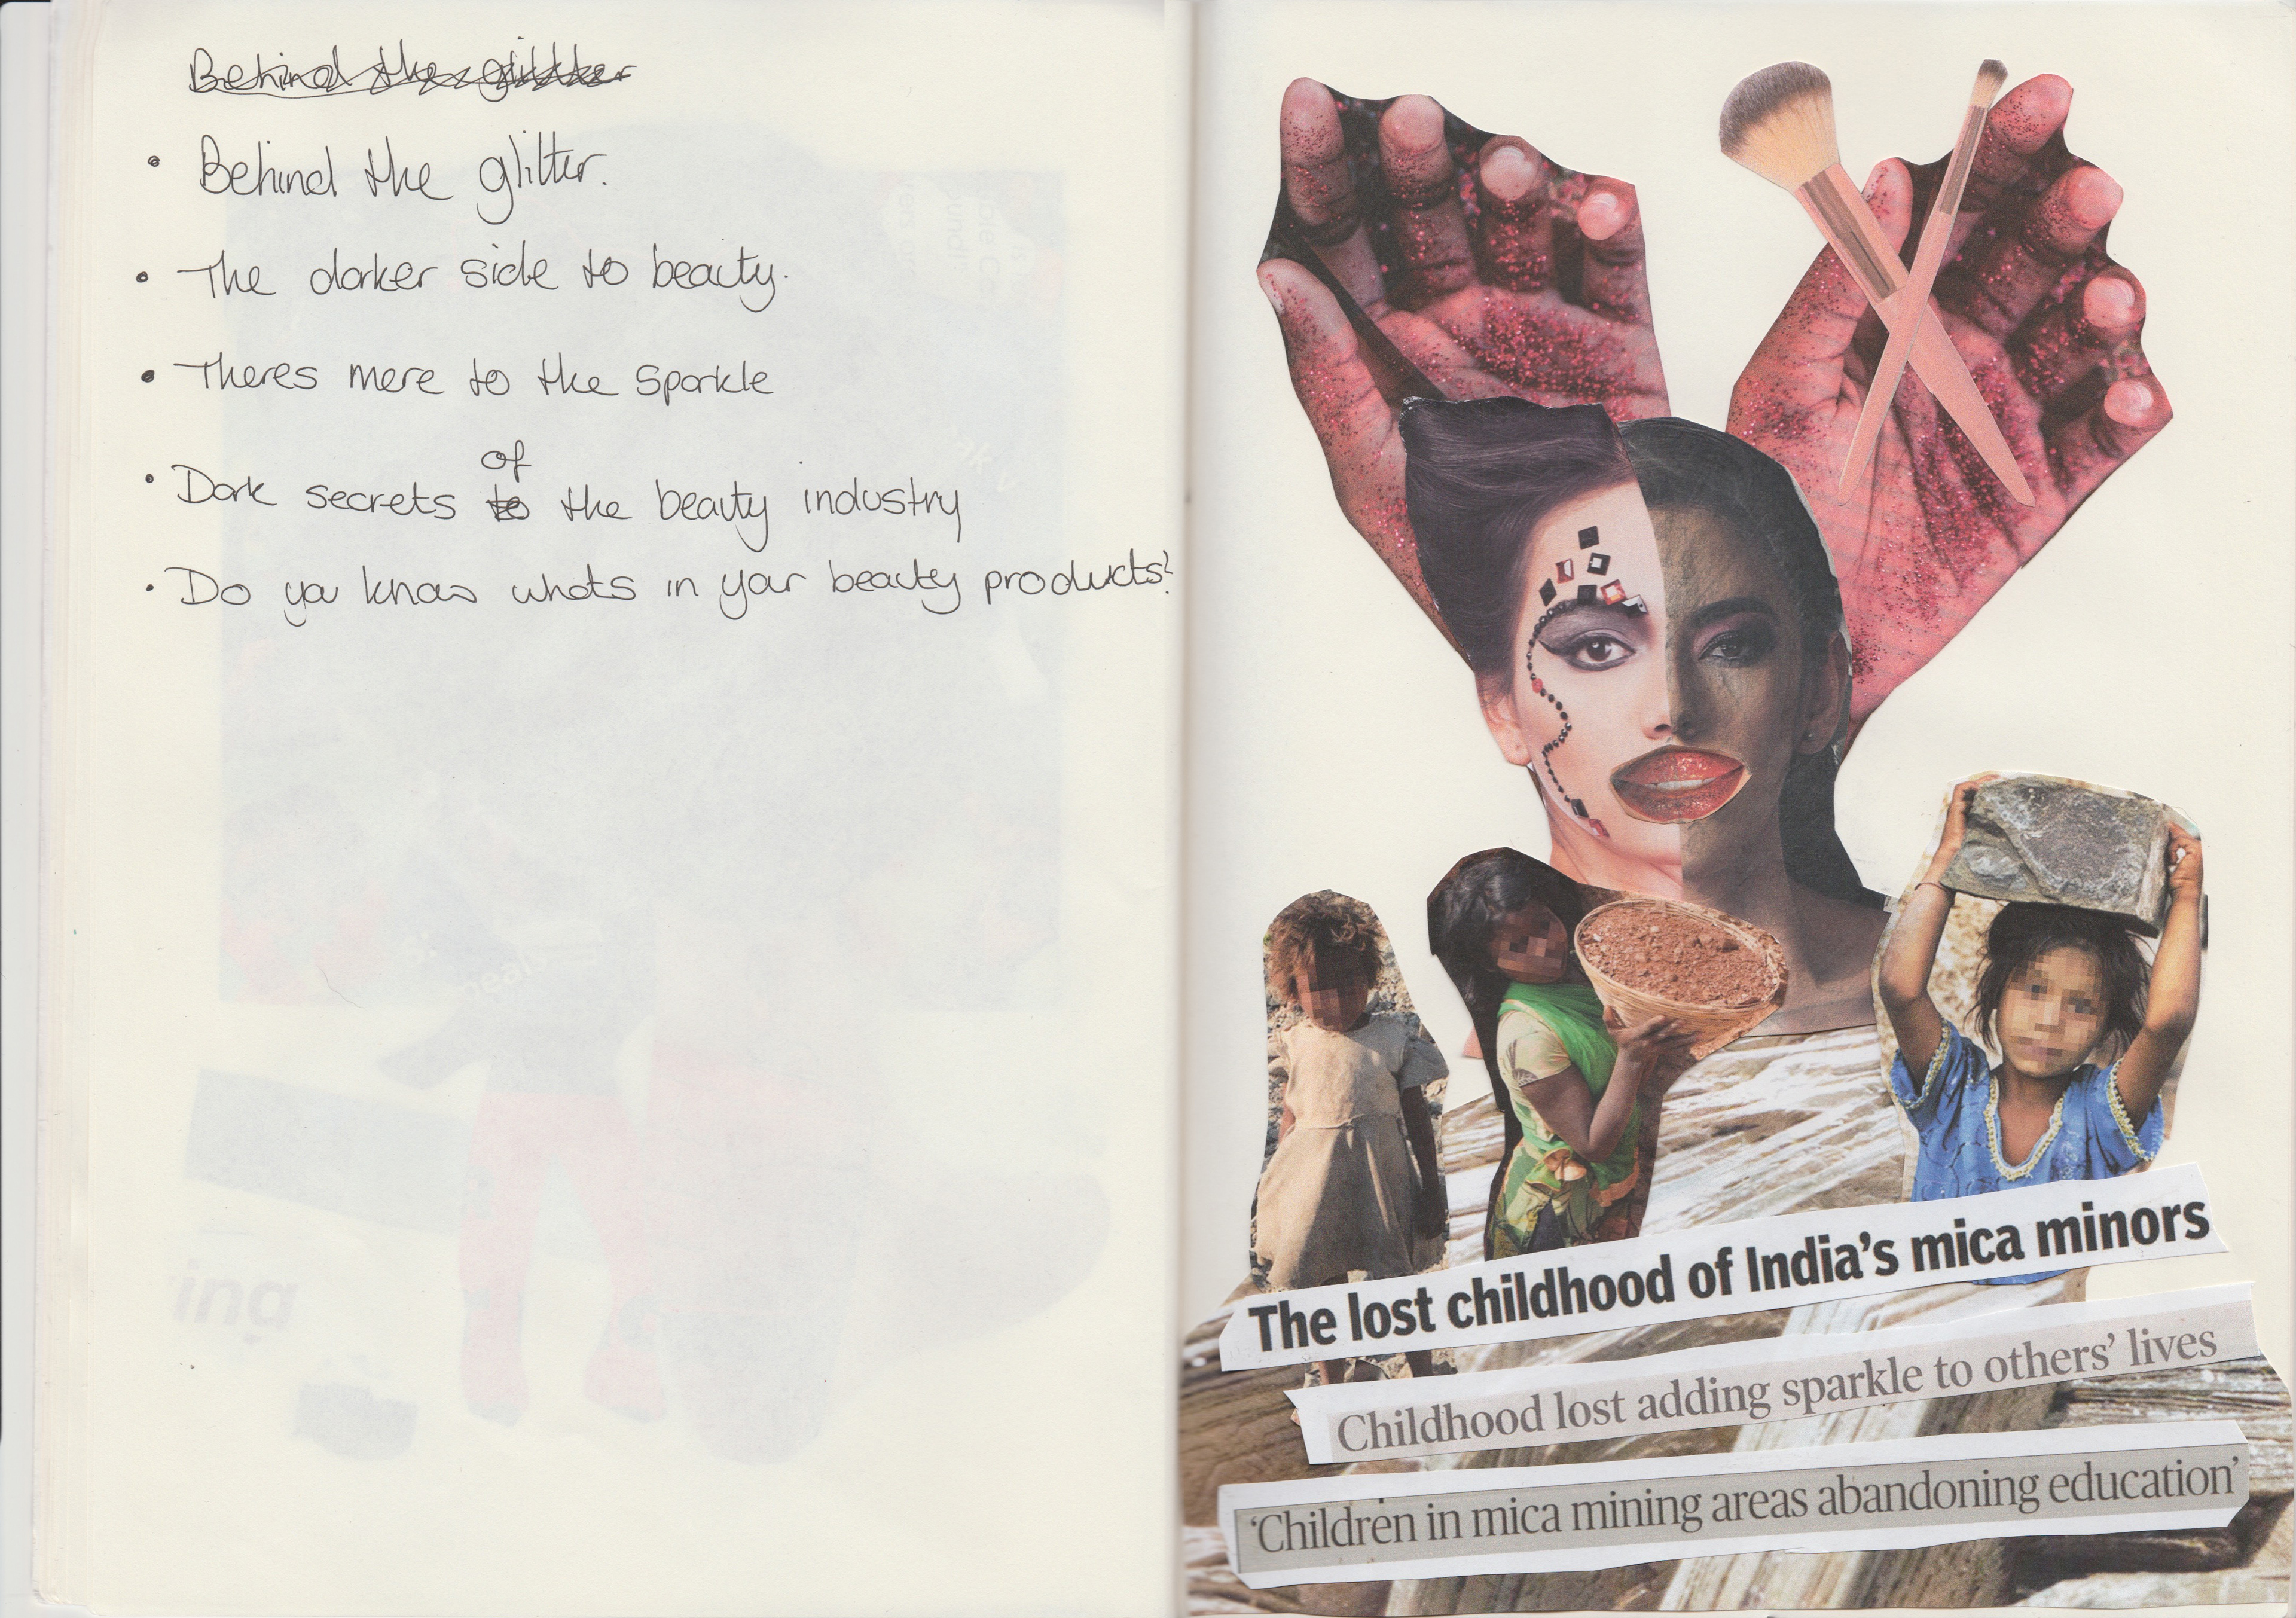 Behind the glitter
• Behind the glitter.
• The darker side to beauty.
• Theres more to the sparkle
• Dark secrets to of the beauty industry
• Do you know whats in your beauty products?
The lost childhood of India's mica minors
Childhood lost adding sparkle to others' lives
'Children in mica mining areas abandoning education'